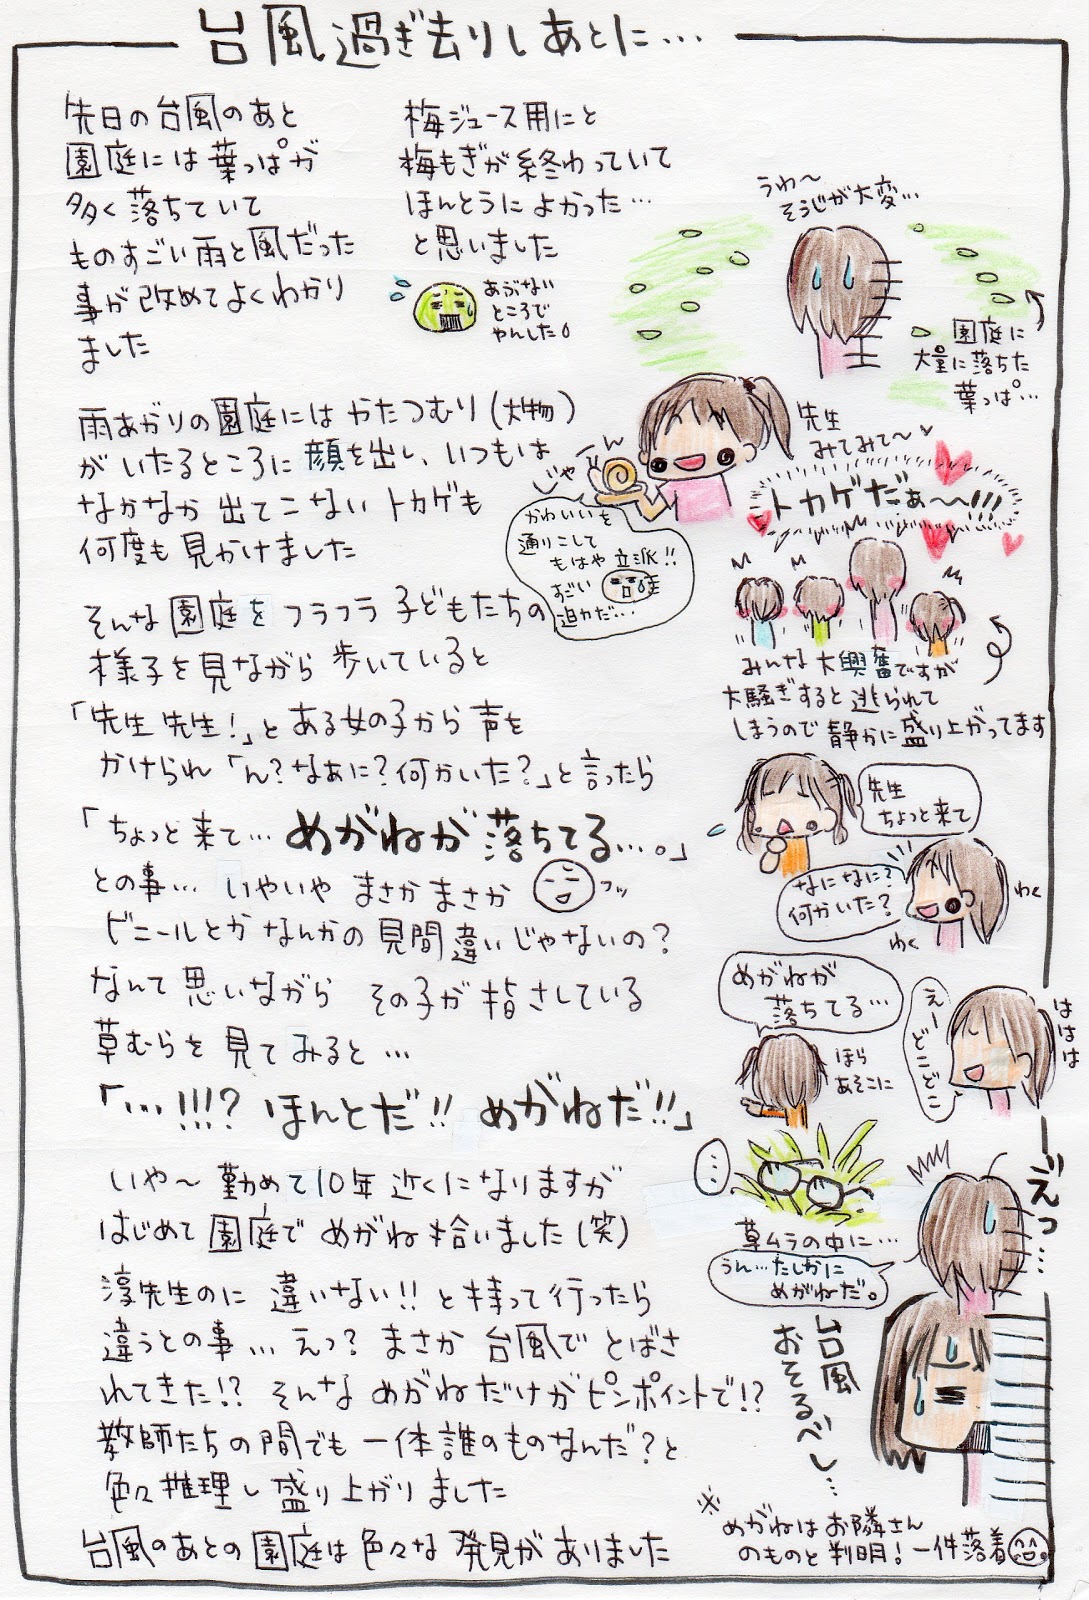 台風過ぎ去りしあとに…
先日の台風のあと
園庭には葉っぱが
多く落ちていて
ものすごい雨と風だった
事が改めてよくわかり
ました
梅ジュース用にと
梅もぎが終わっていて
ほんとうによかった…
と思いました
あぶない
ところで
やんした。
うわ～
そうじが大変…
園庭に
大量に落ちた
葉っぱ…
雨あがりの園庭にはかたつむり(大物)
がいたるところに顔を出し、いつもは
なかなか出てこないトカゲも
何度も見かけました
じゃーん
かわいいを
通りこして
もはや立派!!
すごい
迫力だ…
先生
みてみて～♥
トカゲだぁ～〜!!!
みんな大興奮ですが
大騒ぎすると逃られて
しまうので静かに盛り上がってます
そんな園庭をフラフラ子どもたちの
様子を見ながら歩いていると
「先生先生!」とある女の子から声を
かけられ「ん?なぁに?何かいた?」と言ったら
「ちょっと来て…めがねが落ちてる…。」
との事…いやいやまさかまさか
フッ
ビニールとかなんかの見間違いじゃないの?
なんて思いながらその子が指さしている
草むらを見てみると…
「…!!!?ほんとだ!!めがねだ!!」
先生
ちょっと来て
なになに?
何かいた?
わく
わく
めがねが
落ちてる…
ほら
あそこに
えー
どこどこ
ははは
…
草ムラの中に…
うん…たしかに
めがねだ。
えっ…
いや～勤めて10年近くになりますが
はじめて園庭でめがね拾いました(笑)
淳先生のに違いない!!と持って行ったら
違うとの事…えっ?まさか台風でとばさ
れてきた!?そんなめがねだけがピンポイントで!?
教師たちの間でも一体誰のものなんだ?と
色々推理し盛り上がりました
台風のあとの園庭は色々な発見がありました
台風
おそるべし…
※
めがねはお隣さん
のものと判明!一件落着